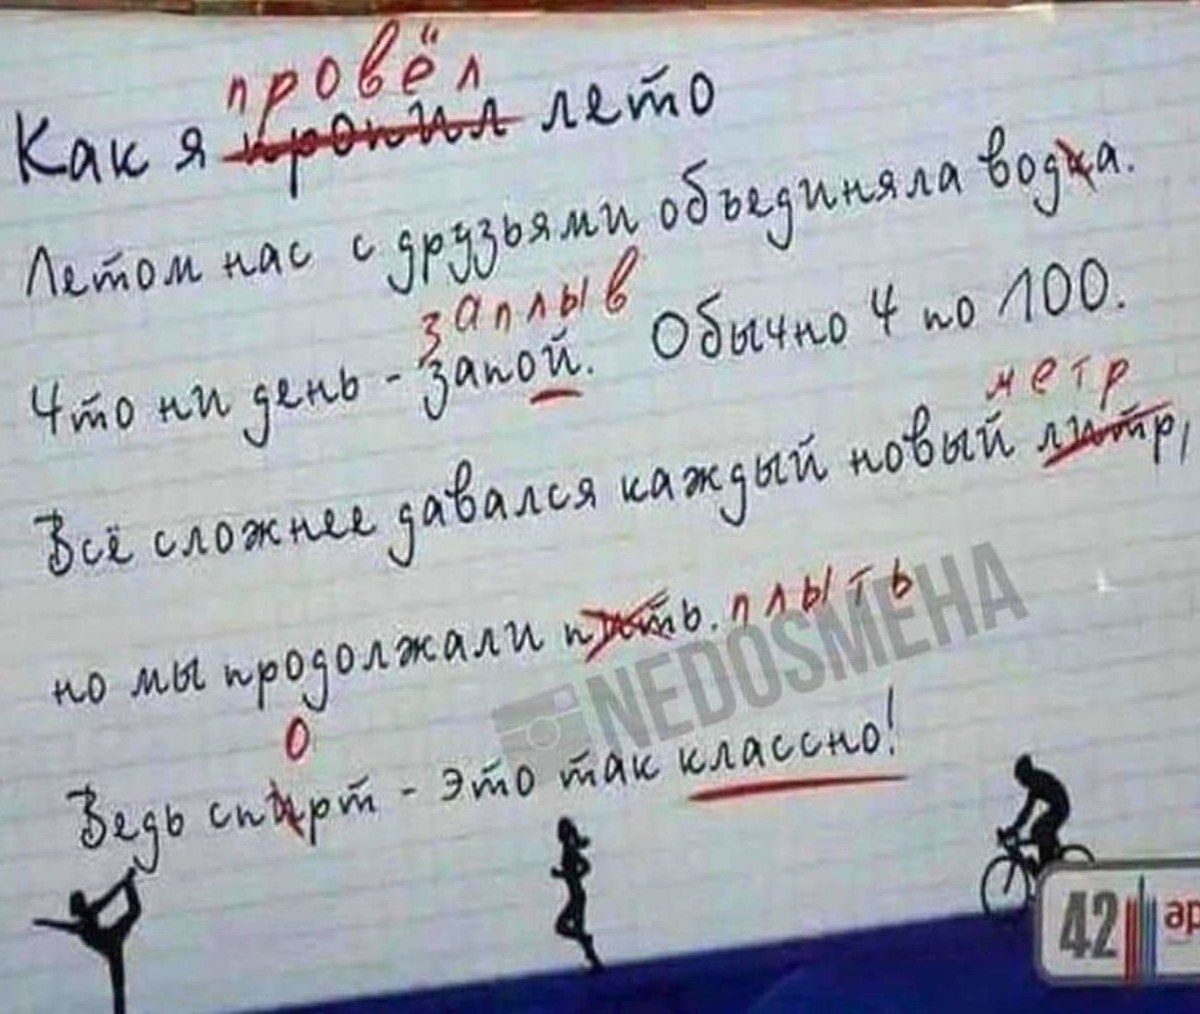 провёл
Как я пропил лето
Летом нас с друзьями объединяла водка.
заплыв
Что ни день - запой. Обычно 4 по 100.
метр
Всё сложнее давался каждый новый литр,
но мы продолжали пить. плыть
NEDOSMEHA
о
Ведь спирт - это так классно!
42 ар